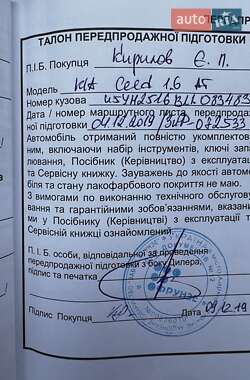 ТАЛОН ПЕРЕДПРОДАЖНОЇ ПІДГОТОВКИ
П.І.Б. Покупця Кирилов Є. П.
Модель KIA Ceed 1.6 AT
Номер кузова
Дата / номер маршрутного листа передпродажної
ної підготовки 04.12.2019
Автомобіль отриманий повністю укомплектова
ним, включаючи набір інструментів, ключі запа
лювання, Посібник (Керівництво) з експлуатаці
та Сервісну книжку. Зауважень до якості автомо
біля та стану лакофарбового покриття не маю.
З вимогами по виконанню технічного обслугову
вання та гарантійними зобов'язаннями, вказани
ми у Посібнику (Керівництво) з експлуатації т
Сервісній книжці ознайомлений.
П. І. Б. особи, відповідальної за проведення
передпродажної підготовки з боку Дилера,
підпис та печатка
Підпис Покупця Дата 04.12.19